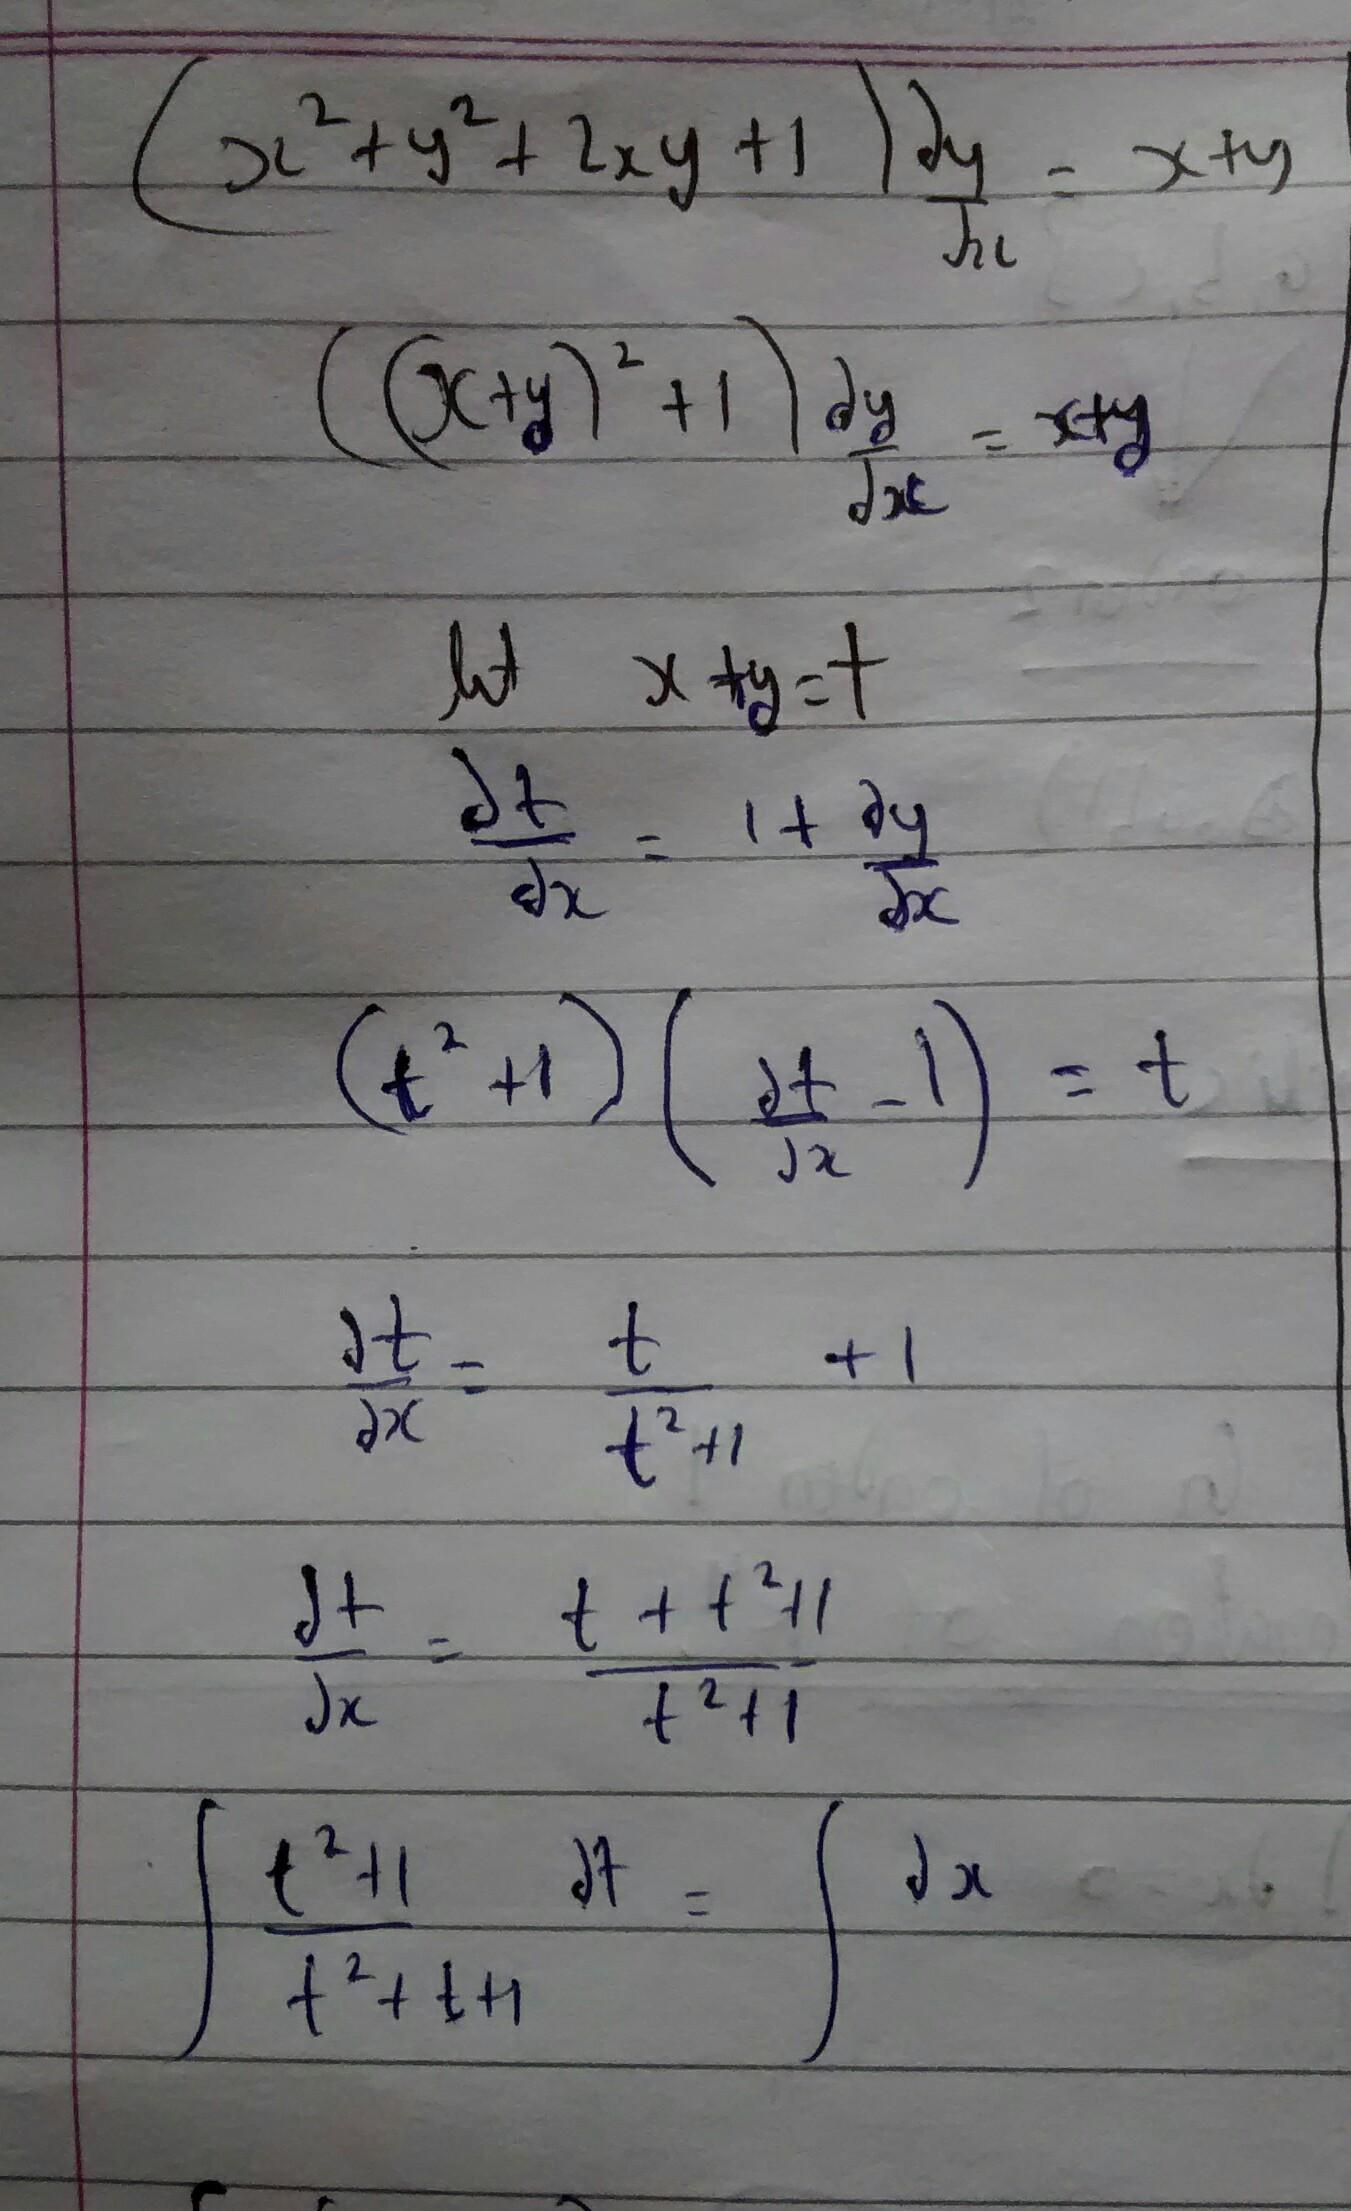 (x²+y²+2xy+1) dy/dx = x+y
((x+y)²+1) dy/dx = x+y
let x+y=t
dt/dx = 1+ dy/dx
(t²+1) (dt/dx -1) = t
dt/dx = t/(t²+1) +1
dt/dx = (t+t²+1)/(t²+1)
∫ (t²+1)/(t²+t+1) dt = ∫ dx